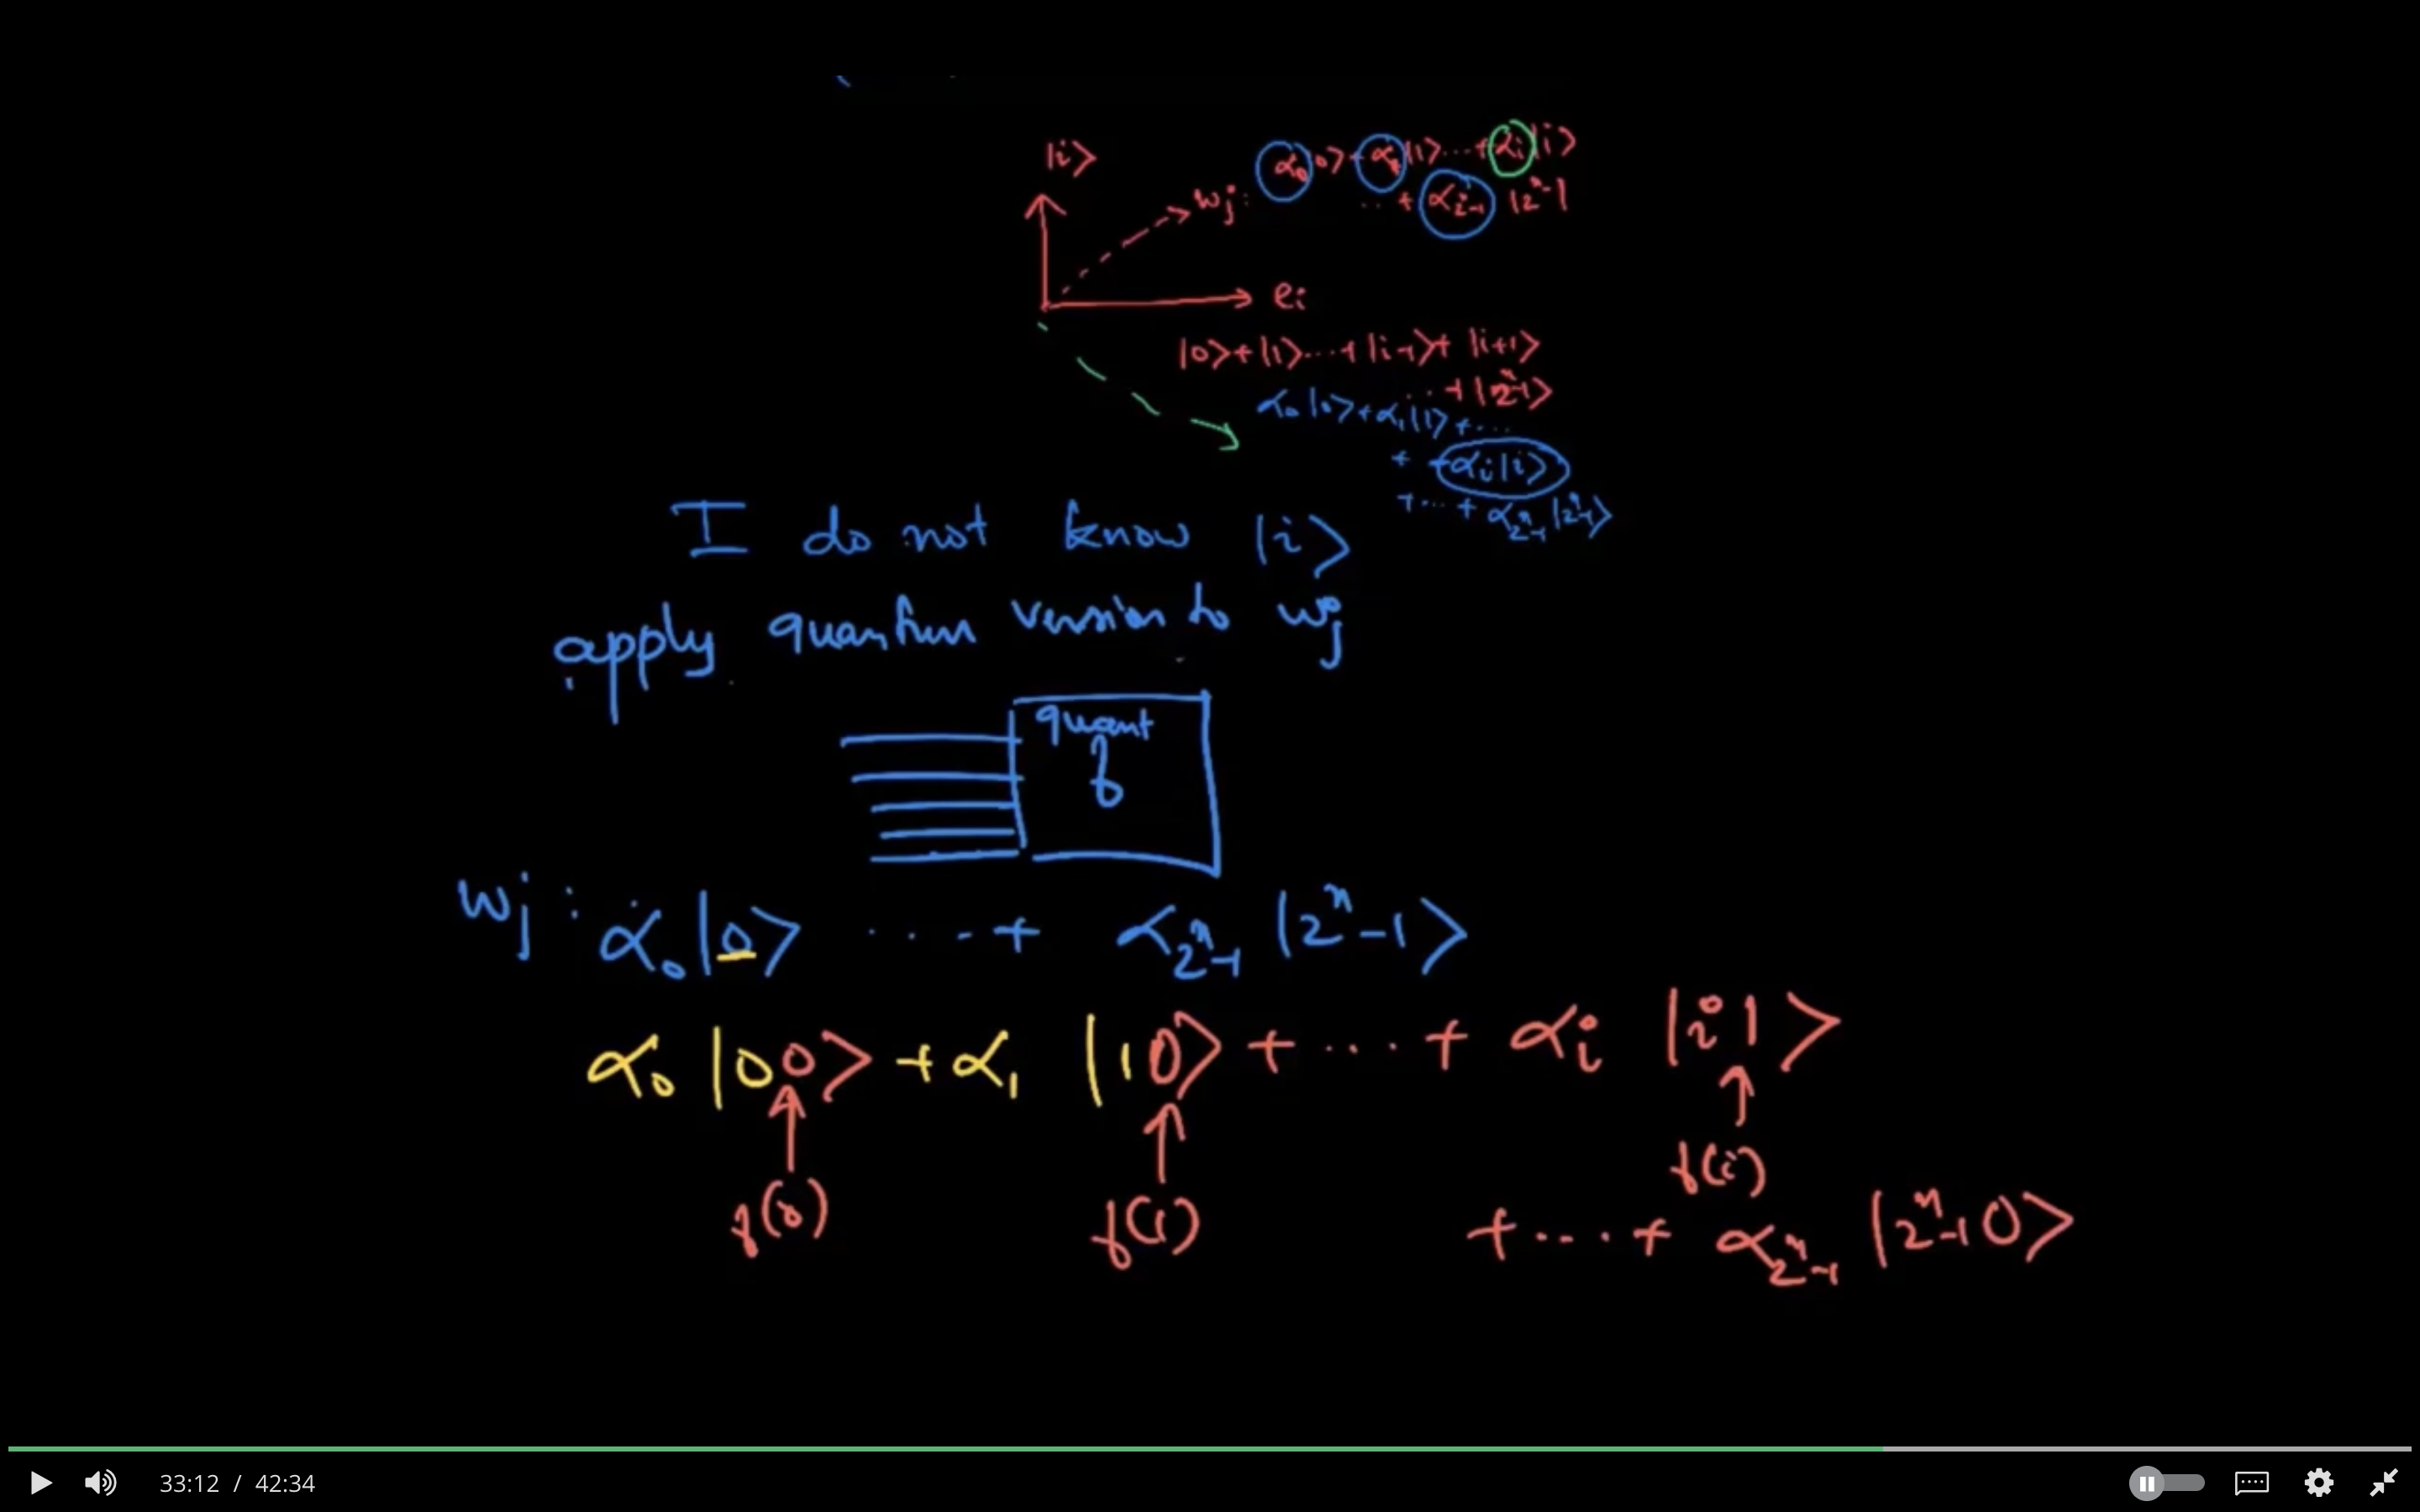 |i⟩
wj: α₀|0⟩ + α₁|1⟩ ... + αi|i⟩
.. + α_{2ⁿ-1} |2ⁿ-1|
ei
|0⟩ + |1⟩ ... + |i-1⟩ + |i+1⟩
... + |2ⁿ-1⟩
α₀|0⟩ + α₁|1⟩ + ...
+ -αi|i⟩
+ ... + α_{2ⁿ-1} |2ⁿ-1⟩
I do not know |i⟩
apply quantum version to wj
quant
f
wj : α₀|0⟩ .... + α_{2ⁿ-1} |2ⁿ-1⟩
α₀ |00⟩ + α₁ |10⟩ + ... + αi |i1⟩
f(0) f(1) f(i)
+ ... + α_{2ⁿ-1} |2ⁿ-1 0⟩
33:12 / 42:34